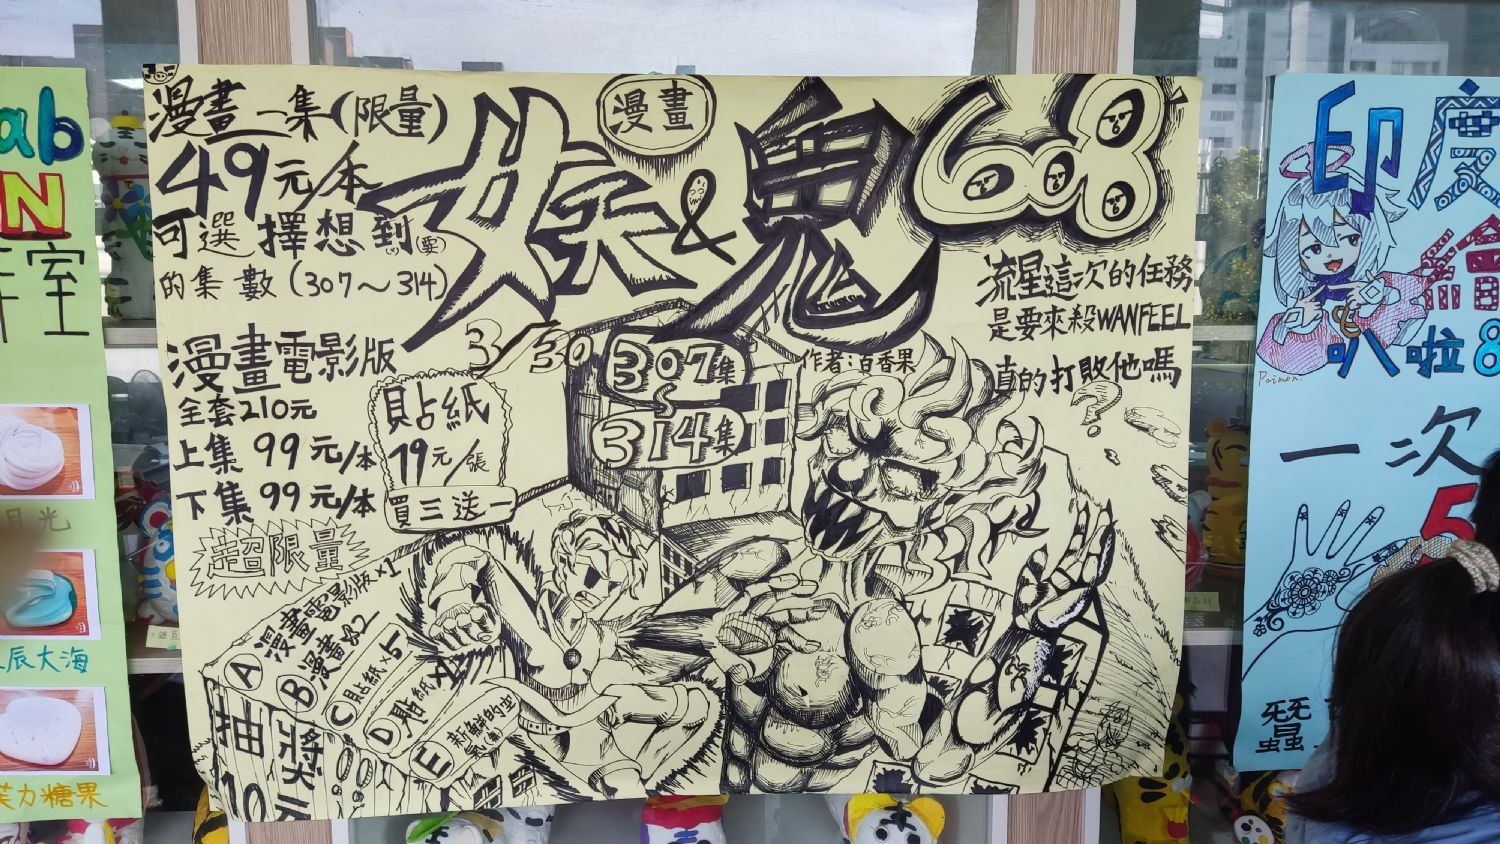 漫畫一集(限量)
49元/本
可選擇想到(要)
的集數(307～314)
漫畫電影版
全套210元
上集 99元/本
下集 99元/本
超限量
貼紙
19元/張
買三送一
漫畫
&鬼
608
3/30
307集
314集
作者:百香果
流星這次的任務
是要來殺WANFEEL
真的打敗他嗎
?
A 漫畫電影版×1
B 漫畫×2
C 貼紙×5
D 貼紙×1
E
抽獎!!
10元
ab
N
室
月光
辰大海
力糖果
印度
繪
叭啦8
Paimon.
一次
5
蠶